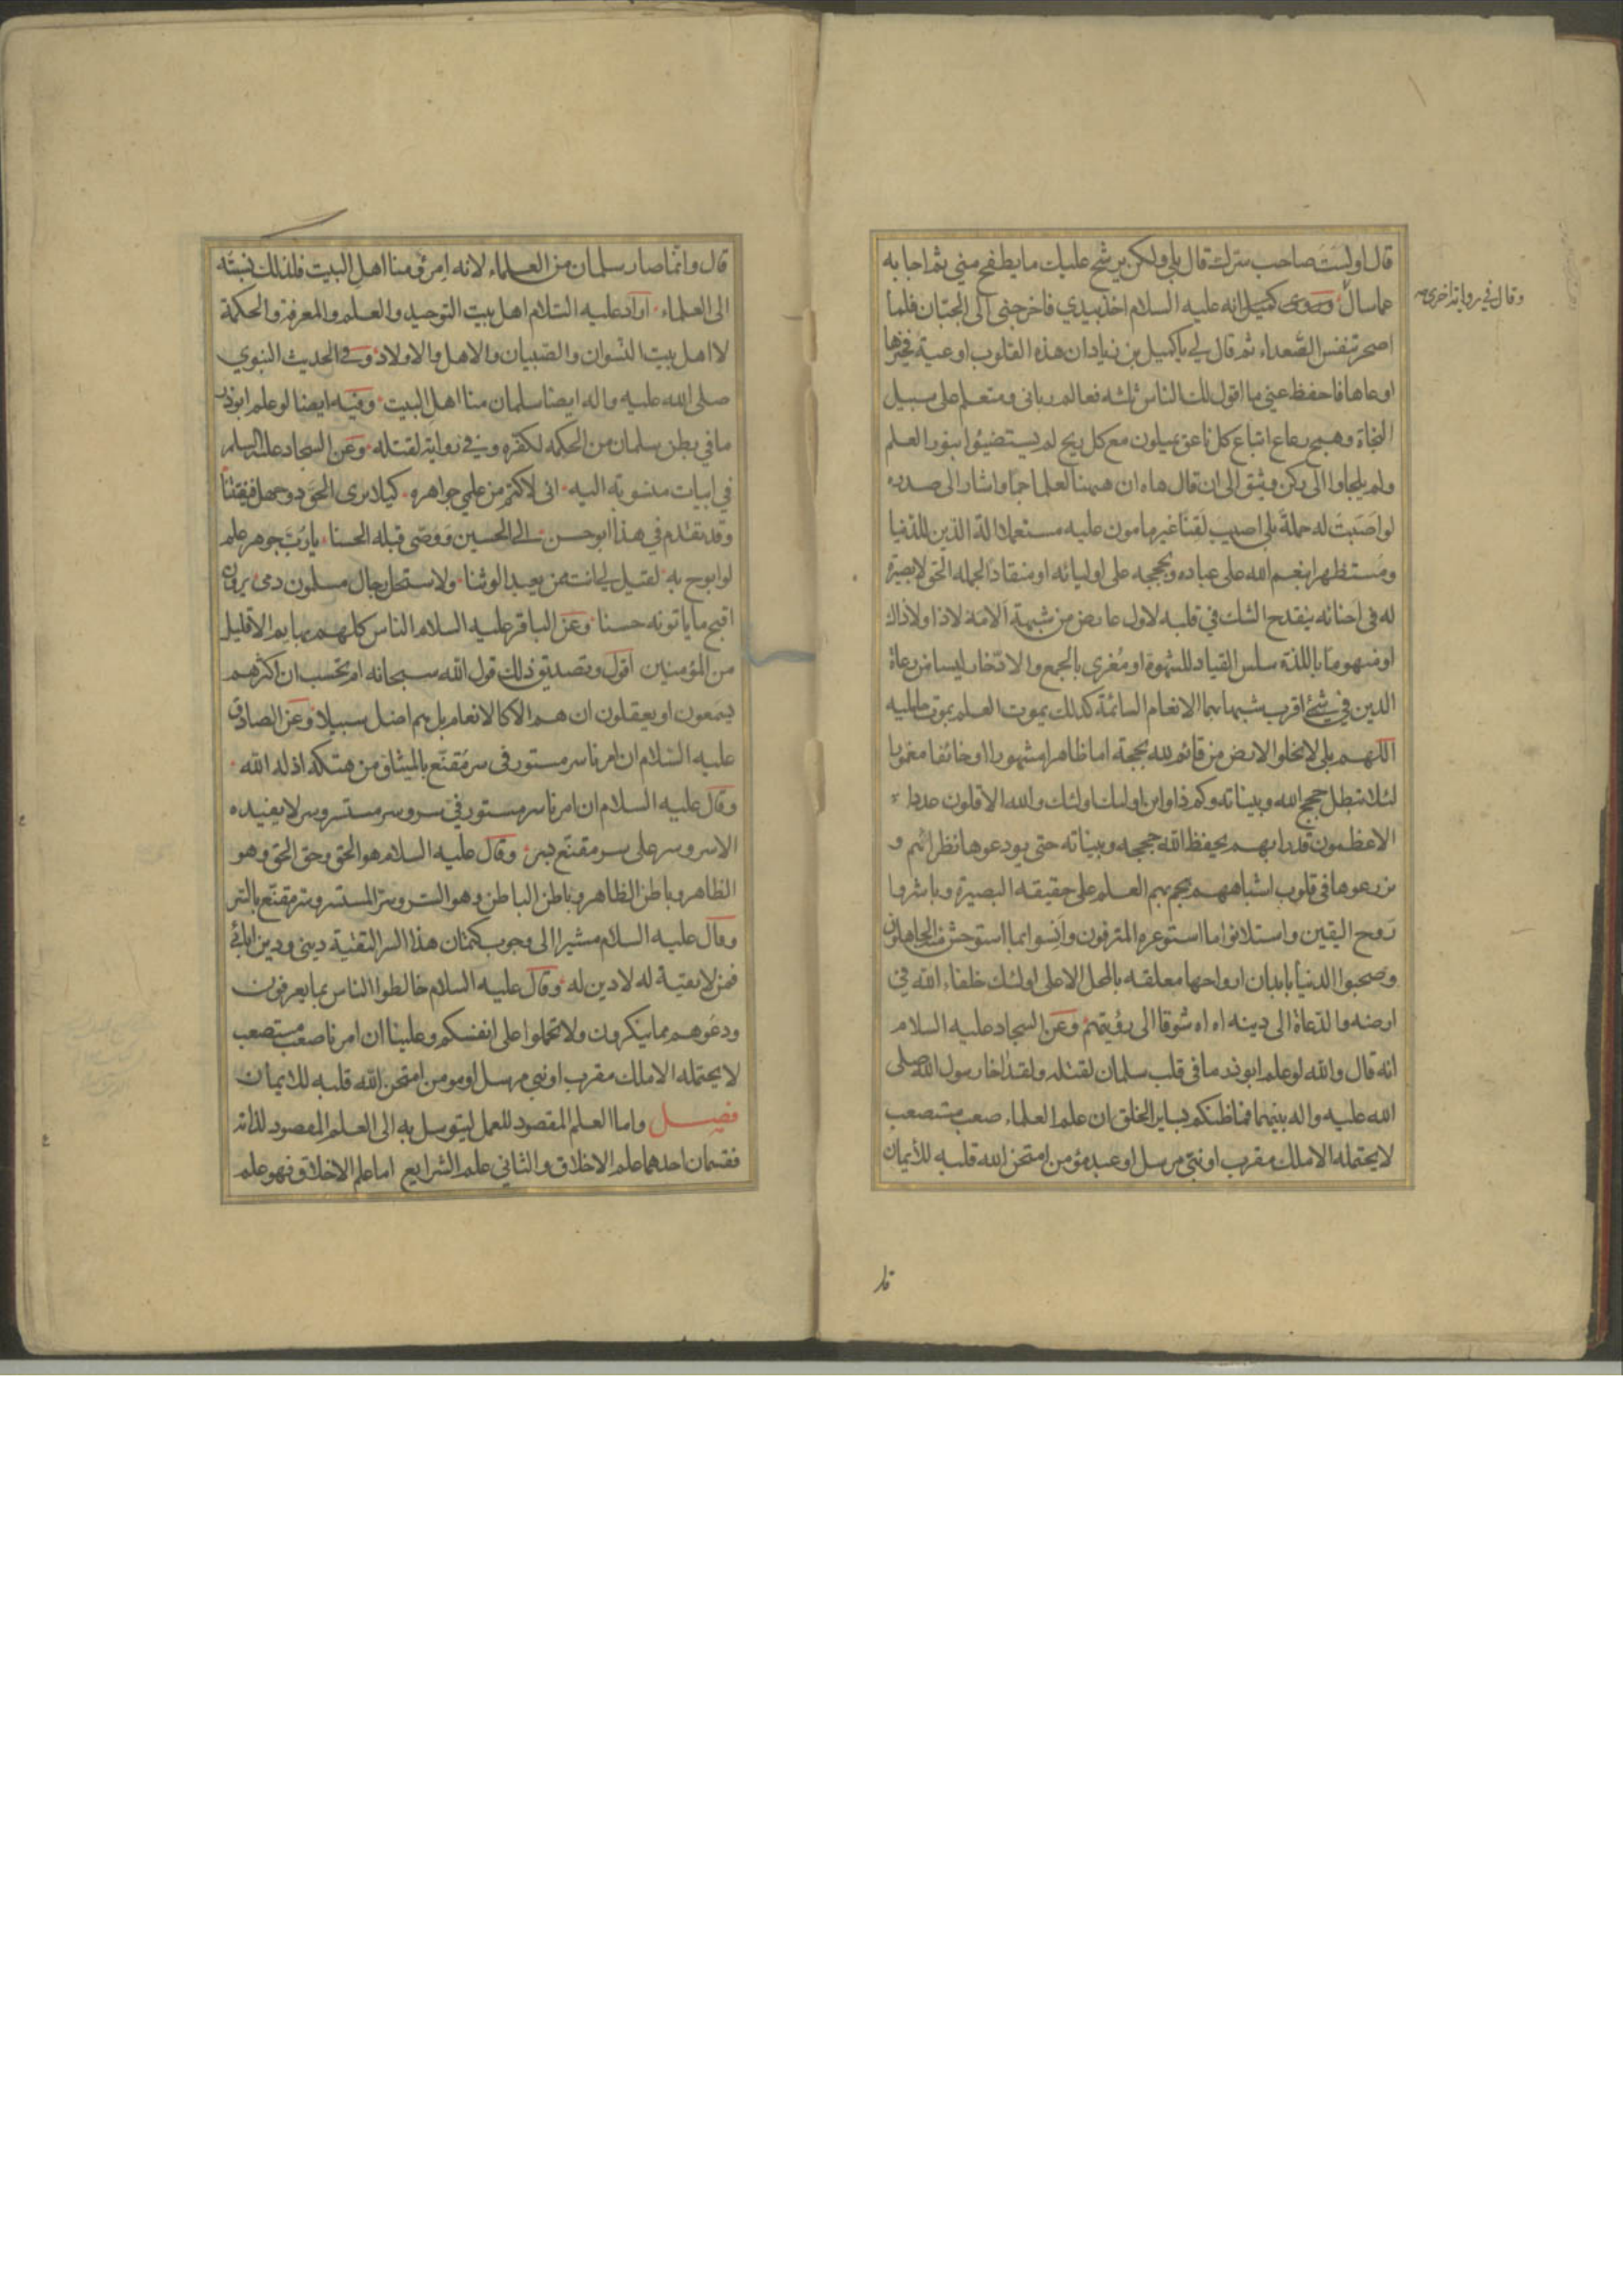 قال اولست صاحب سرك قال بلى ولكن يرشح عليك ما يطفح مني ثم اجابه
عما سال وروى كميل انه عليه السلام اخذ بيدي فاخرجني الى الجبان فلما
وقال في رواية اخرى
اصحر تنفس الصعداء ثم قال لي يا كميل بن زياد ان هذه القلوب اوعية فخيرها
اوعاها فاحفظ عني ما اقول لك الناس ثلثه فعالم رباني ومتعلم على سبيل
النجاة وهمج رعاع اتباع كل ناعق يميلون مع كل ريح لم يستضيئوا بنور العلم
ولم يلجاوا الى ركن وثيق الى ان قال هاه ان هيهنا لعلما جما واشار الى صدره
لو اصبت له حملة بلى اصيب لقنا غير مامون عليه مستعملا الة الدين للدنيا
ومستظهرا بنعم الله على عباده وبحججه على اوليائه او منقادا لجمله الحق لا بصيرة
له في احنائه ينقدح الشك في قلبه لاول عارض من شبهة الا لا ذا ولا ذاك
او منهوما باللذة سلس القياد للشهوة او مغرى بالجمع والادخار ليسا من رعاة
الدين في شئ اقرب شبها بهما الانعام السائمة كذلك يموت العلم بموت حامليه
اللهم بلى لا يخلو الارض من قائم لله بحجة اما ظاهرا مشهورا او خائفا مغمورا
لئلا تبطل حجج الله وبيناته وكم ذا واين اولئك اولئك والله الاقلون عددا
الاعظمون قدرا بهم يحفظ الله حججه وبيناته حتى يودعوها نظرائهم و
يزرعوها في قلوب اشباههم هجم بهم العلم على حقيقه البصيرة وباشروا
روح اليقين واستلانوا ما استوعره المترفون وانسوا بما استوحش منه الجاهلون
وصحبوا الدنيا بابدان ارواحها معلقه بالمحل الاعلى اولئك خلفاء الله في
ارضه والدعاة الى دينه اه اه شوقا الى رؤيتهم وعن السجاد عليه السلام
انه قال والله لو علم ابوذر ما في قلب سلمان لقتله ولقد اخا رسول الله صلى
الله عليه واله بينهما فما ظنكم بساير الخلق ان علم العلماء صعب مستصعب
لا يحتمله الا ملك مقرب او نبي مرسل او عبد مؤمن امتحن الله قلبه للايمان
قال وانما صار سلمان من العلماء لانه امرؤ منا اهل البيت فلذلك نسبته
الى العلماء اراد عليه السلام اهل بيت التوحيد والعلم والمعرفة والحكمة
لا اهل بيت النسوان والصبيان والاهل والاولاد وفي الحديث النبوي
صلى الله عليه واله ايضا سلمان منا اهل البيت وفيه ايضا لو علم ابوذر
ما في بطن سلمان من الحكمه لكفره وفي رواية لقتله وعن السجاد عليه السلم
في ابيات منسوبة اليه اني لاكتم من علمي جواهره كيلا يرى الحق ذو جهل فيفتننا
وقد تقدم في هذا ابو حسن الى الحسين ووصى قبله الحسنا يا رب جوهر علم
لو ابوح به لقيل لي انت ممن يعبد الوثنا ولاستحل رجال مسلمون دمي يرون
اقبح ما ياتونه حسنا وعن الباقر عليه السلام الناس كلهم بهايم الا قليل
من المؤمنين اقول وتصديق ذلك قول الله سبحانه ام تحسب ان اكثرهم
يسمعون او يعقلون ان هم الا كالانعام بل هم اضل سبيلا وعن الصادق
عليه السلام ان امرنا سر مستور في سر مقنع بالميثاق من هتكه اذله الله
وقال عليه السلام ان امرنا سر مستور في سر وسر مستسر وسر لا يفيده
الا سر وسر على سر مقنع بسر وقال عليه السلام هو الحق وحق الحق وهو
الظاهر وباطن الظاهر وباطن الباطن وهو السر وسر المستسر وسر مقنع بالسر
وقال عليه السلام مشيرا الى وجوب كتمان هذا السر التقية ديني ودين ابائي
فمن لا تقية له لا دين له وقال عليه السلام خالطوا الناس بما يعرفون
ودعوهم مما ينكرون ولا تحملوا على انفسكم وعلينا ان امرنا صعب مستصعب
لا يحتمله الا ملك مقرب او نبي مرسل او مومن امتحن الله قلبه للايمان
فصل واما العلم المقصود للعمل ليتوسل به الى العلم المقصود لذاته
فقسمان احدهما علم الاخلاق والثاني علم الشرايع اما علم الاخلاق فهو علم
قال